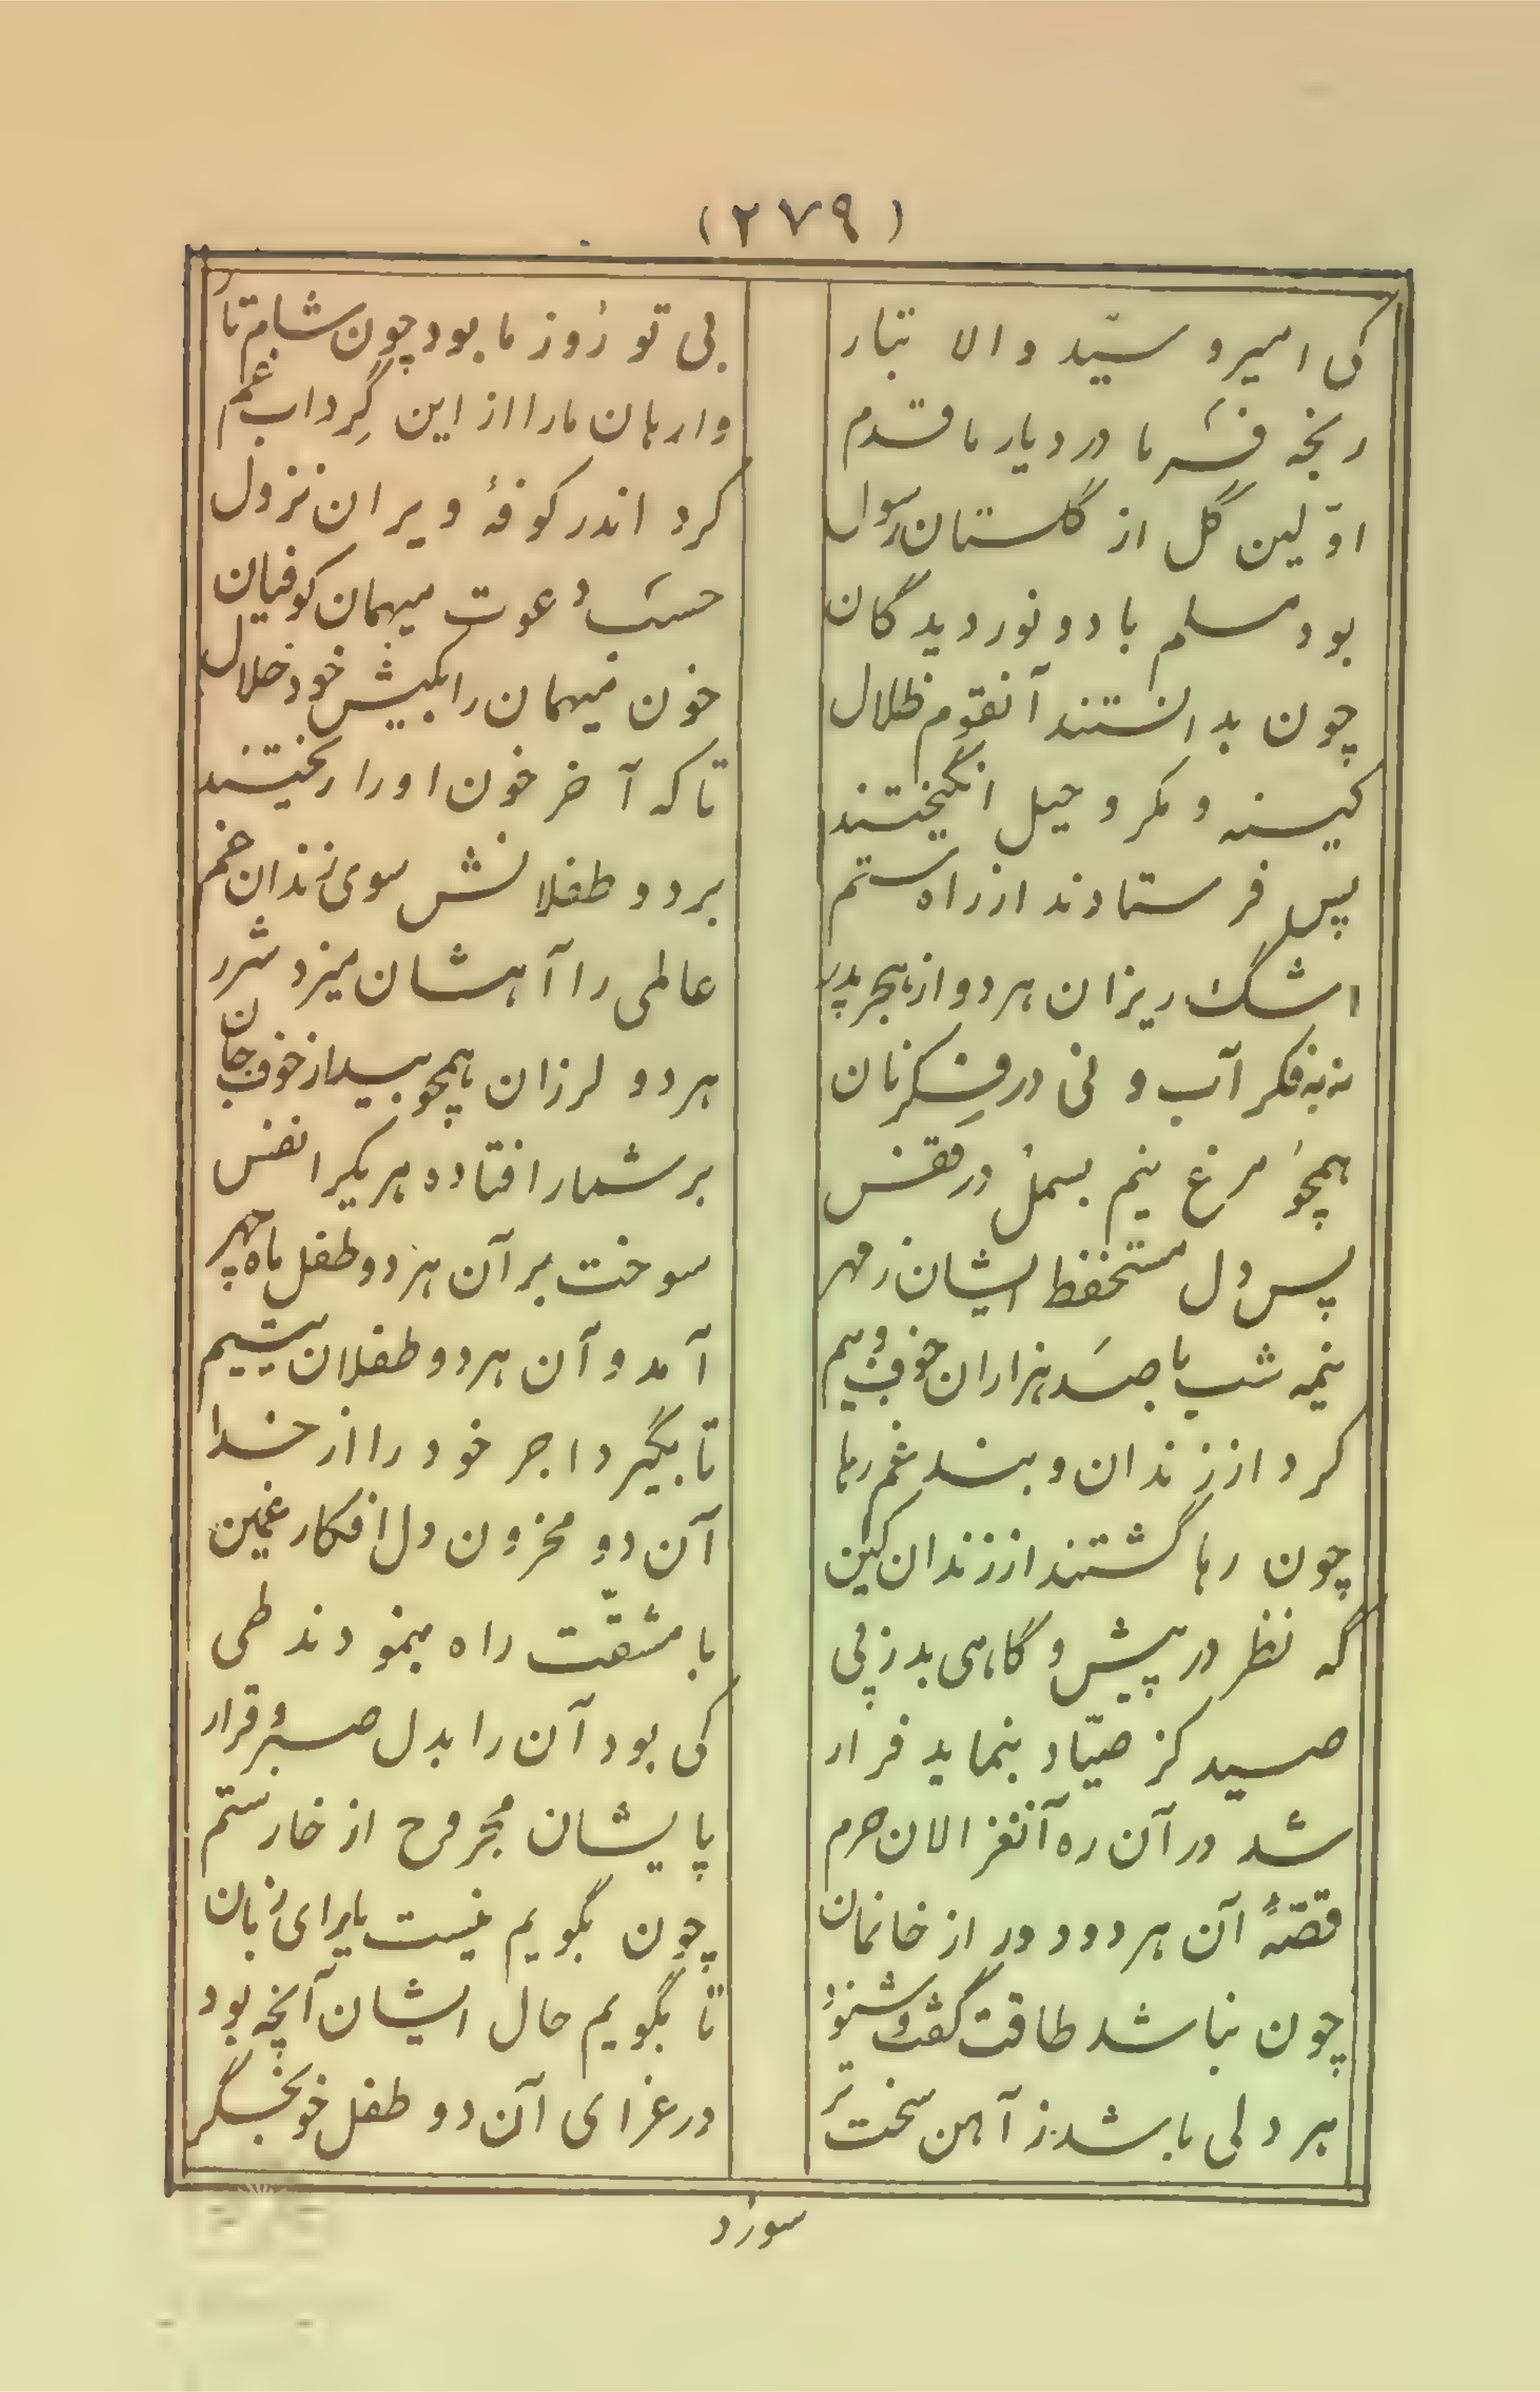 (۲۷۹)
کی امیر و سیّد والا تبار
بی تو روز ما بود چون شام تار
رنجه فرما در دیار ما قدم
وارهان ما را از این گرداب غم
اوّلین گل از گلستان رسول
کرد اندر کوفهٔ ویران نزول
بود مسلم با دو نور دیدگان
حسب دعوت میهمان کوفیان
چون بدانستند آنقوم ظلال
خون میهمان را بکیش خود حلال
کینه و مکر و حیل انگیختند
تا که آخر خون او را ریختند
پس فرستادند از راه ستم
بر دو طفلانش سوی زندان غم
اشگ ریزان هر دو از هجر پدر
عالمی را آهشان میزد شرر
نه به فکر آب و نی در فکر نان
هر دو لرزان همچو بید از خوف جان
همچو مرغ نیم بسمل در قفس
بر شمار افتاده هر یکرا نفس
پس دل مستحفظ ایشان ز مهر
سوخت بر آن هر دو طفل ماه چهر
نیمه شب با صد هزاران خوف و بیم
آمد و آن هر دو طفلان یتیم
کرد از زندان و بند غم رها
تا بگیرد اجر خود را از خدا
چون رها گشتند از زندان کین
آن دو محزون دل افکار غمین
که نظر در پیش و گاهی بد ز پی
با مشقّت راه مینمودند طی
صید کز صیّاد بنماید فرار
کی بود آن را بدل صبر و قرار
شد در آن ره آنغزالان حرم
پایشان مجروح از خار ستم
قصّهٔ آن هر دو دور از خانمان
چون بگویم نیست یارای زبان
چون نباشد طاقت گفت و شنود
تا بگویم حال ایشان آنچه بود
هر دلی باشد ز آهن سخت تر
در عزای آن دو طفل خونجگر
سوزد